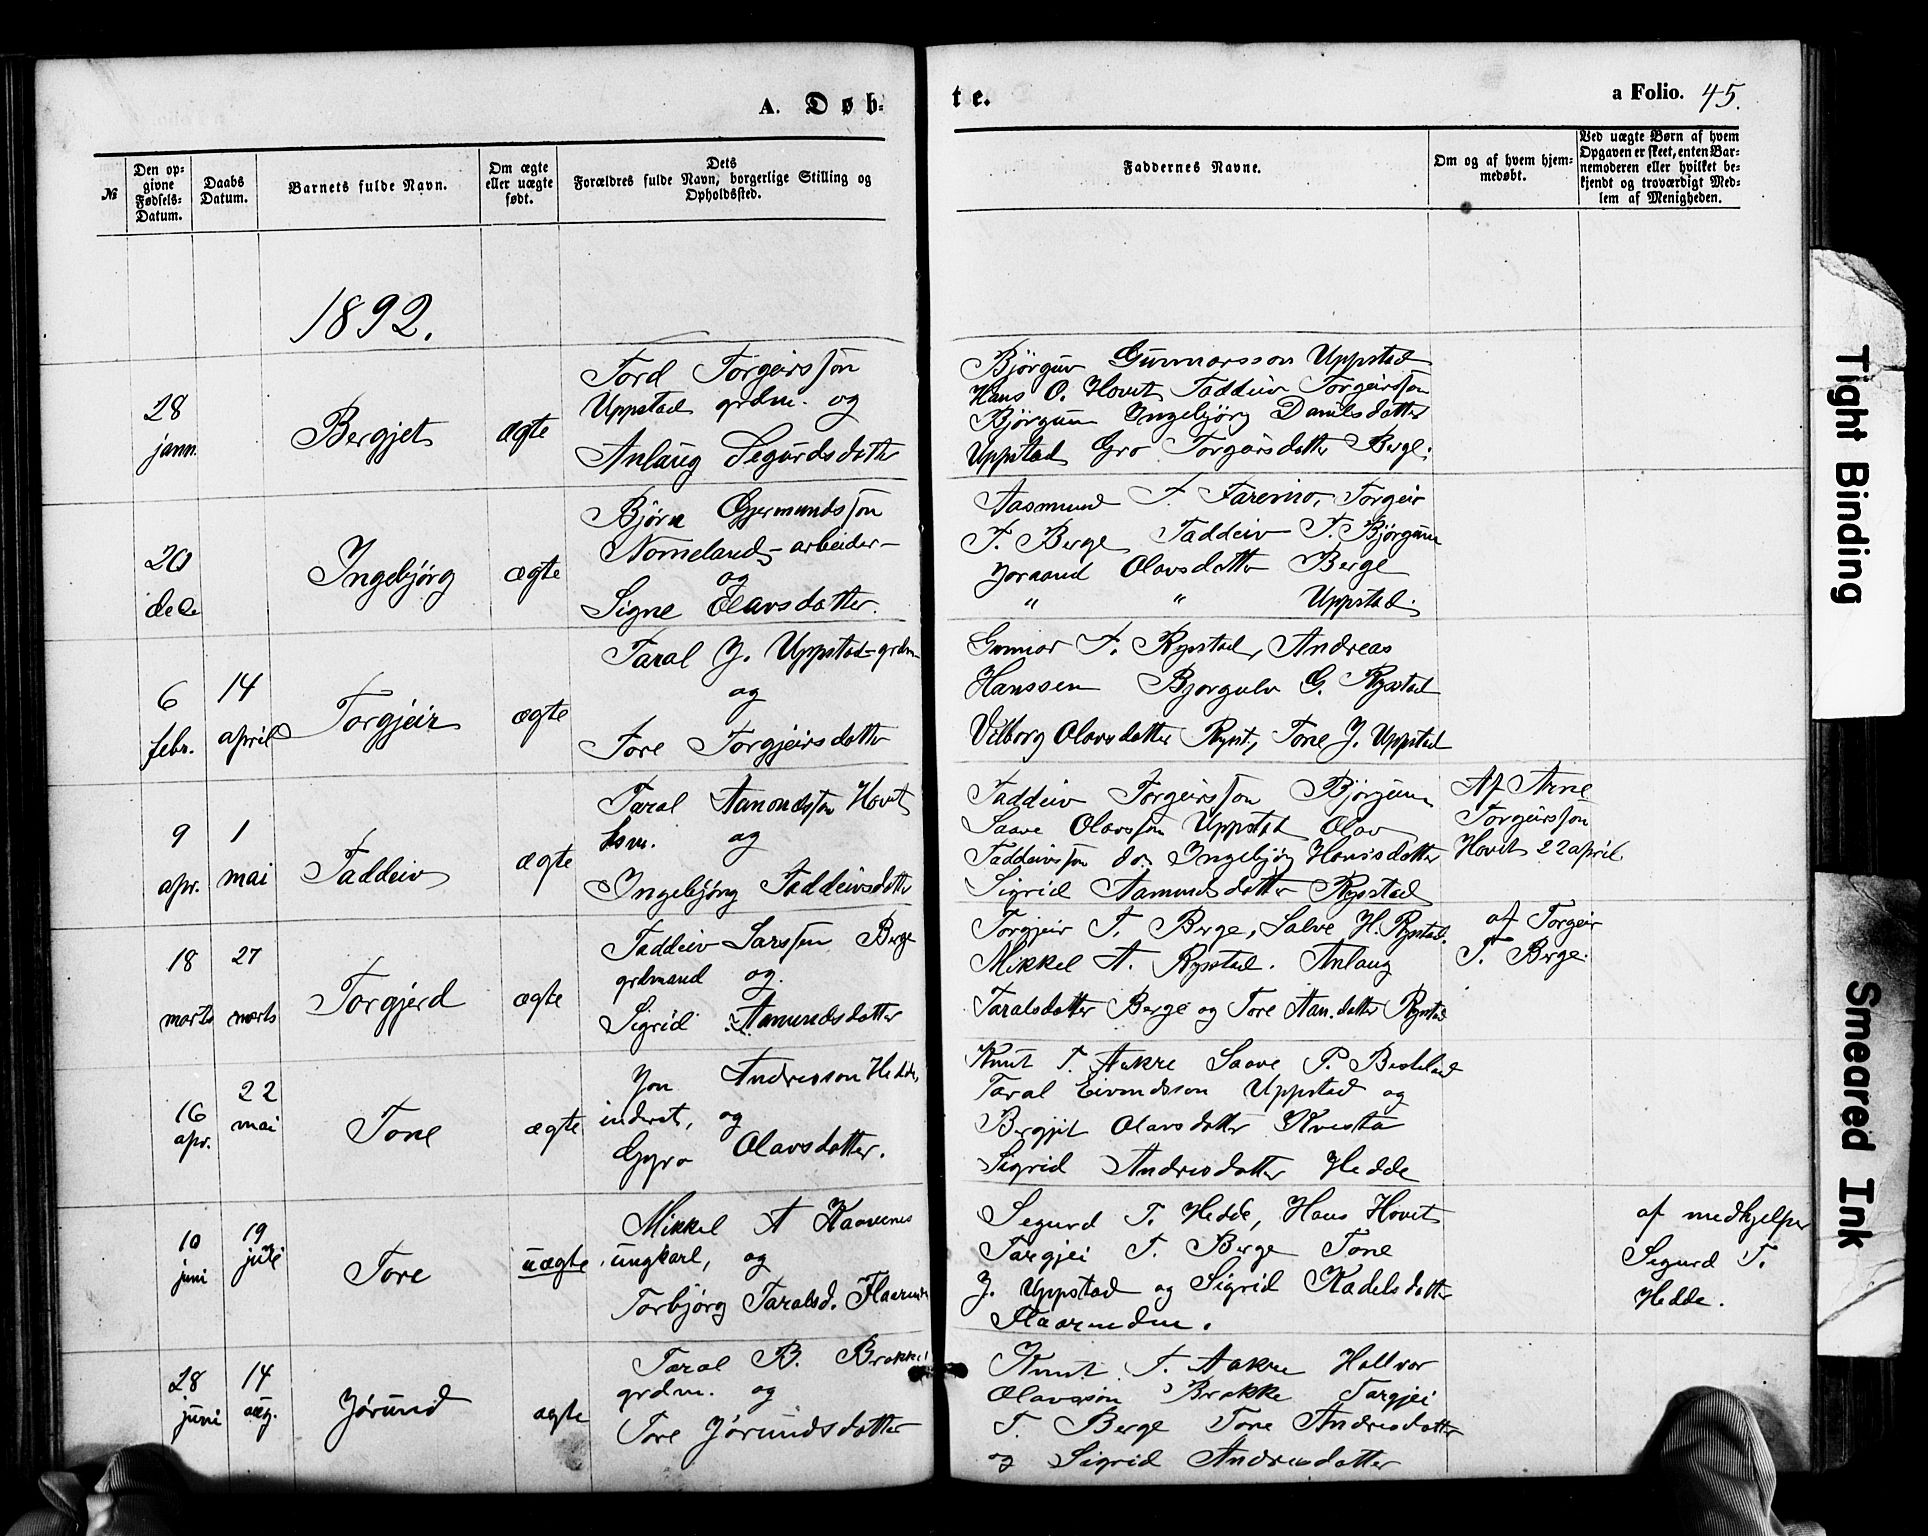 A. Døb-
te.
a Folio. 45.
№
Den op-
givne
Fødsels-
Datum.
Daabs
Datum.
Barnets fulde Navn.
Om ægte
eller uægte
født.
Dets
Forældres fulde Navn, borgerlige Stilling og
Opholdssted.
Faddernes Navne.
Om og af hvem hjem-
medøbt.
Ved uægte Børn af hvem
Opgaven er skeet, enten Bar-
nemoderen eller hvilket be-
kjendt og troværdigt Med-
lem af Menigheden.
1892.
28
jann.
Bergjet
ægte
Tord Torgeirsson
Uppstad grdm. og
Anlaug Segurdsdatter
Björguv Gunnarsson Uppstad
Hans O. Hovet Taddeiv Torgeirsson
Björgum Ingebjörg Danilsdatter
Uppstad Gro Torgeirsdatter Berge.
20
dece
Ingebjörg
ægte
Bjørn Gjermundsson
Nomeland - arbeider -
og
Signe Olavsdatter.
Aasmund T. Tareino, Torgeir
T. Berge Taddeiv T. Björgum
Joraand Olavsdatter Berge
" " Uppstad.
6
febr.
14
april
Torgjeir
ægte
Taral J. Uppstad - grdm
og
Tore Torgjeirsdatter
Gunnar T. Rysstad, Andreas
Hanssen Bjorgulv G. Rysstad
Vilborg Olavsdatter Ryst, Tone J. Uppstad
9
apr.
1
mai
Taddeiv
ægte
Taral Aamondsson Hovet
hsm. og
Ingebjörg Taddeivsdatter
Taddeiv Torgeirsson Björgum
Saave Olavsson Uppstad Olav
Taddeivsson do. Ingebjörg Hansdatter
Sigrid Aamundsdatter Rysstad
Af Arne
Torgeirsson
Hovet 22 april.
18
marts
27
marts
Torgjerd
ægte
Taddeiv Larssen Berge
grdmand og
Sigrid Aamundsdatter
Torgjeir T. Berge, Salve H. Rystad.
Mikkel A. Rysstad. Anlaug
Taralsdatter Berge og Tore Aan.datter Rystad
af Torgeir
T. Berge.
16
apr.
22
mai
Tone
ægte
Jon Andresson Hedde,
inderst, og
Gyro Olavsdatter.
Knut T. Aakre Saave P. Besteland
Taral Eivindsson Uppstad og
Bergjit Olavsdatter Kvesta
Sigrid Andresdatter Hedde
10
juni
19
juli
Tore
uægte
Mikkel A Kaavenes
ungkarl, og
Torbjörg Taralsd. Flaarend
Segurd T. Hedde, Hans Hovet
Targjei T. Berge Tone
J. Uppstad og Sigrid Kadelsdatter
Flaarenden.
af medhjelper
Segurd T.
Hedde.
28
juni
14
aug.
Jórund
ægte
Taral B. Brokke
grdm. og
Tore Jórundsdatter
Knut T. Aakre Hallvor
Olavsson Brokke Targjei
T. Berge Tone Andresdatter
og Sigrid Andresdatter
Tight Binding
Smeared Ink